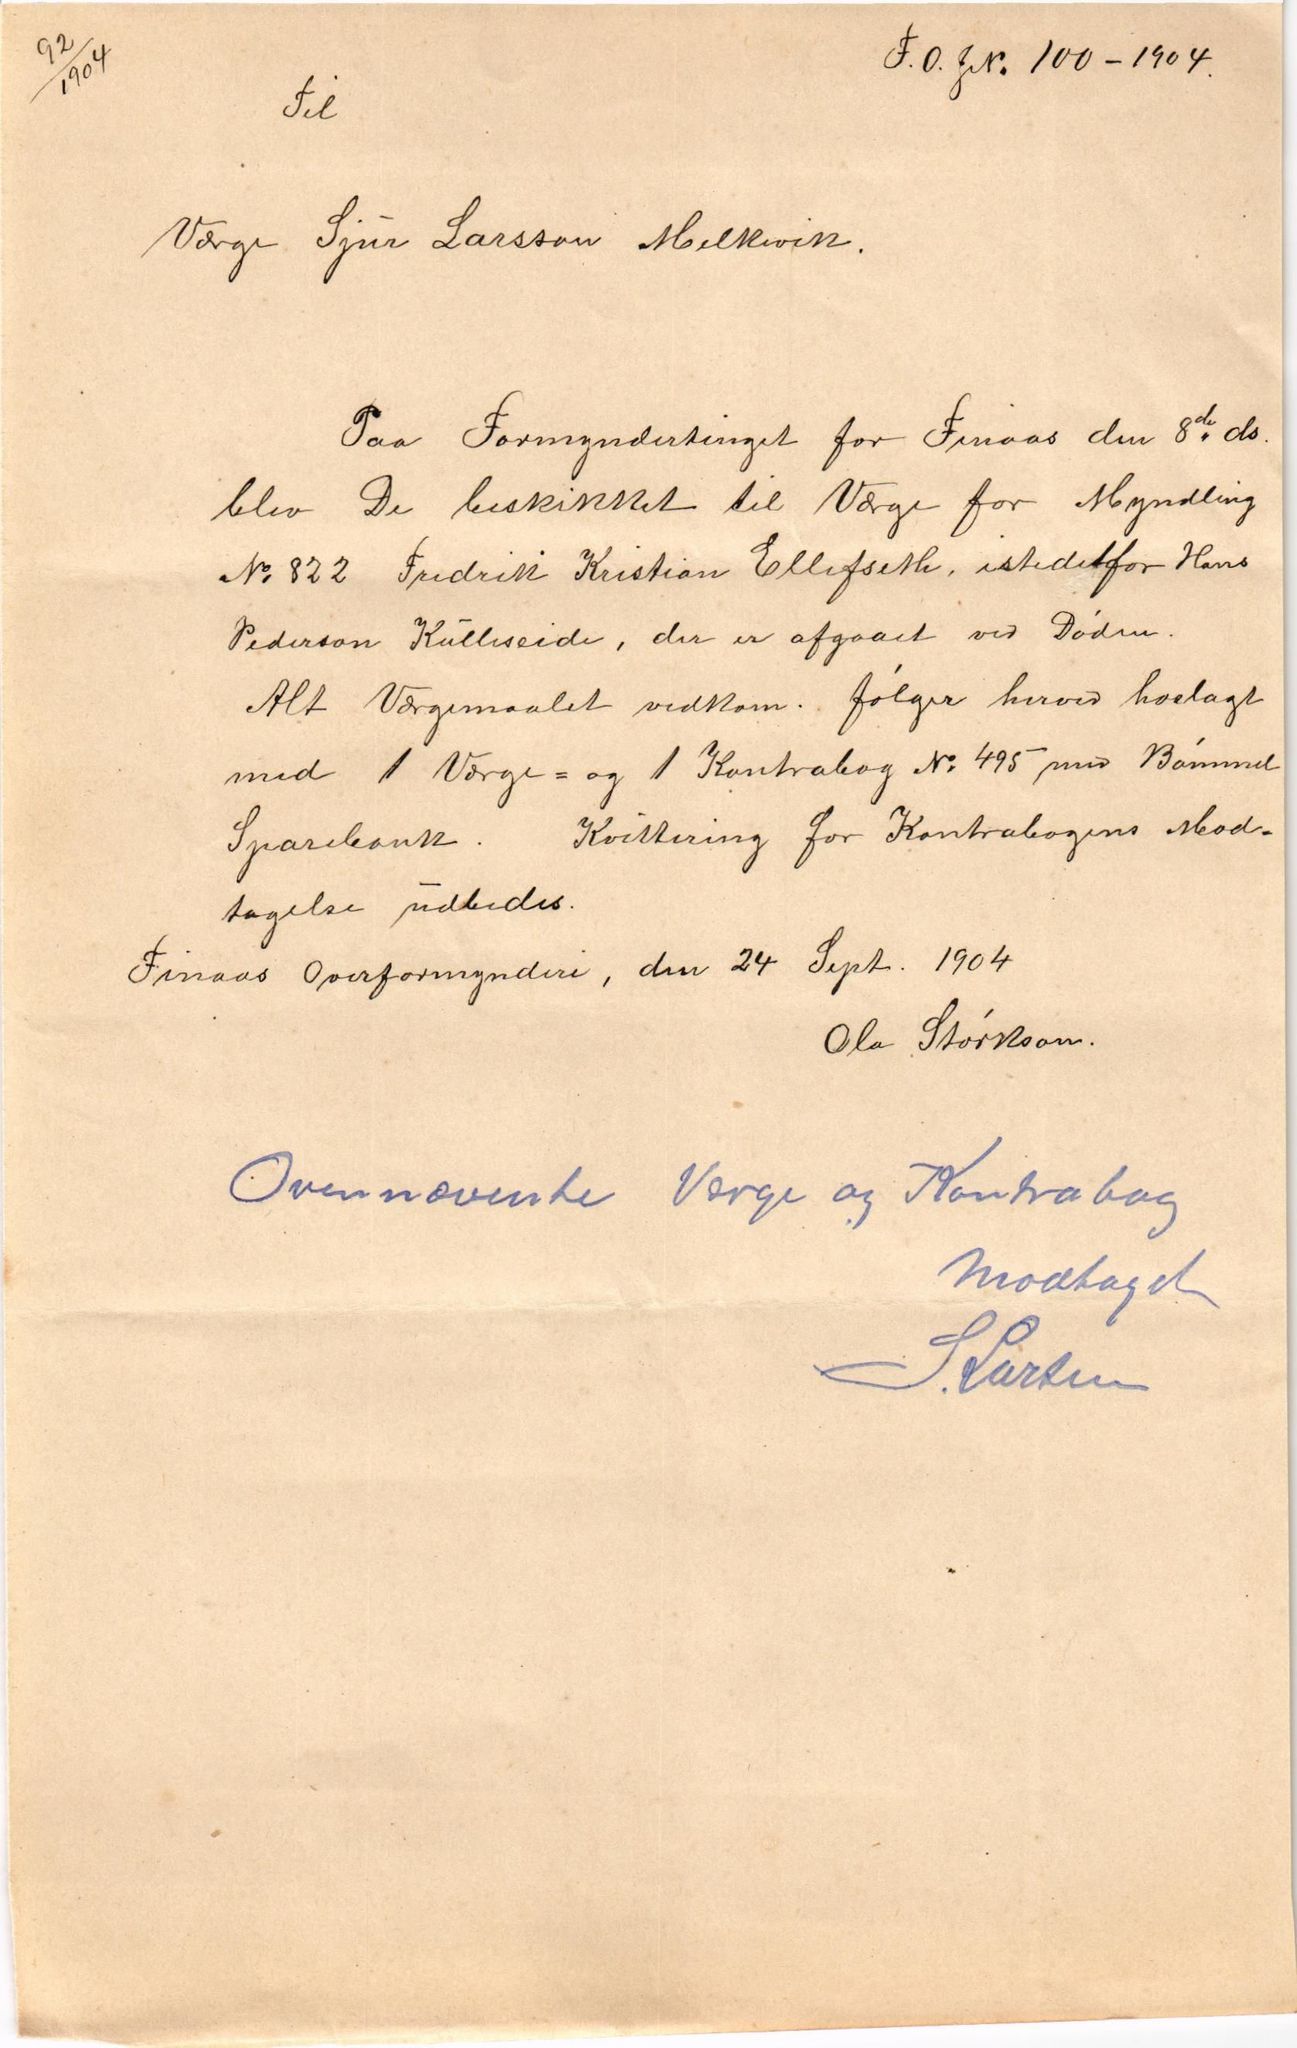 92/1904
F.O. JN. 100 - 1904.
Til
Værge Sjur Larsson Melkevik.
Paa Formyndertinget for Finaas den 8de ds.
blev De beskikket til Værge for Myndling
No. 822 Fredrik Kristian Ellefseth, istedetfor Hans
Pederson Kulleseide, der er afgaaet ved Døden.
Alt Værgemaalet vedkom. følger herved hoslagt
med 1 Værge= og 1 Kontrabog No. 495 med Bømmel
Sparebank. Kvittering for Kontrabogens Mod-
tagelse udbedes.
Finaas Overformynderi, den 24 Sept. 1904
Ola Størkson.
Ovennævente Værge og Kontrabog
Modtaget
S. Larsen